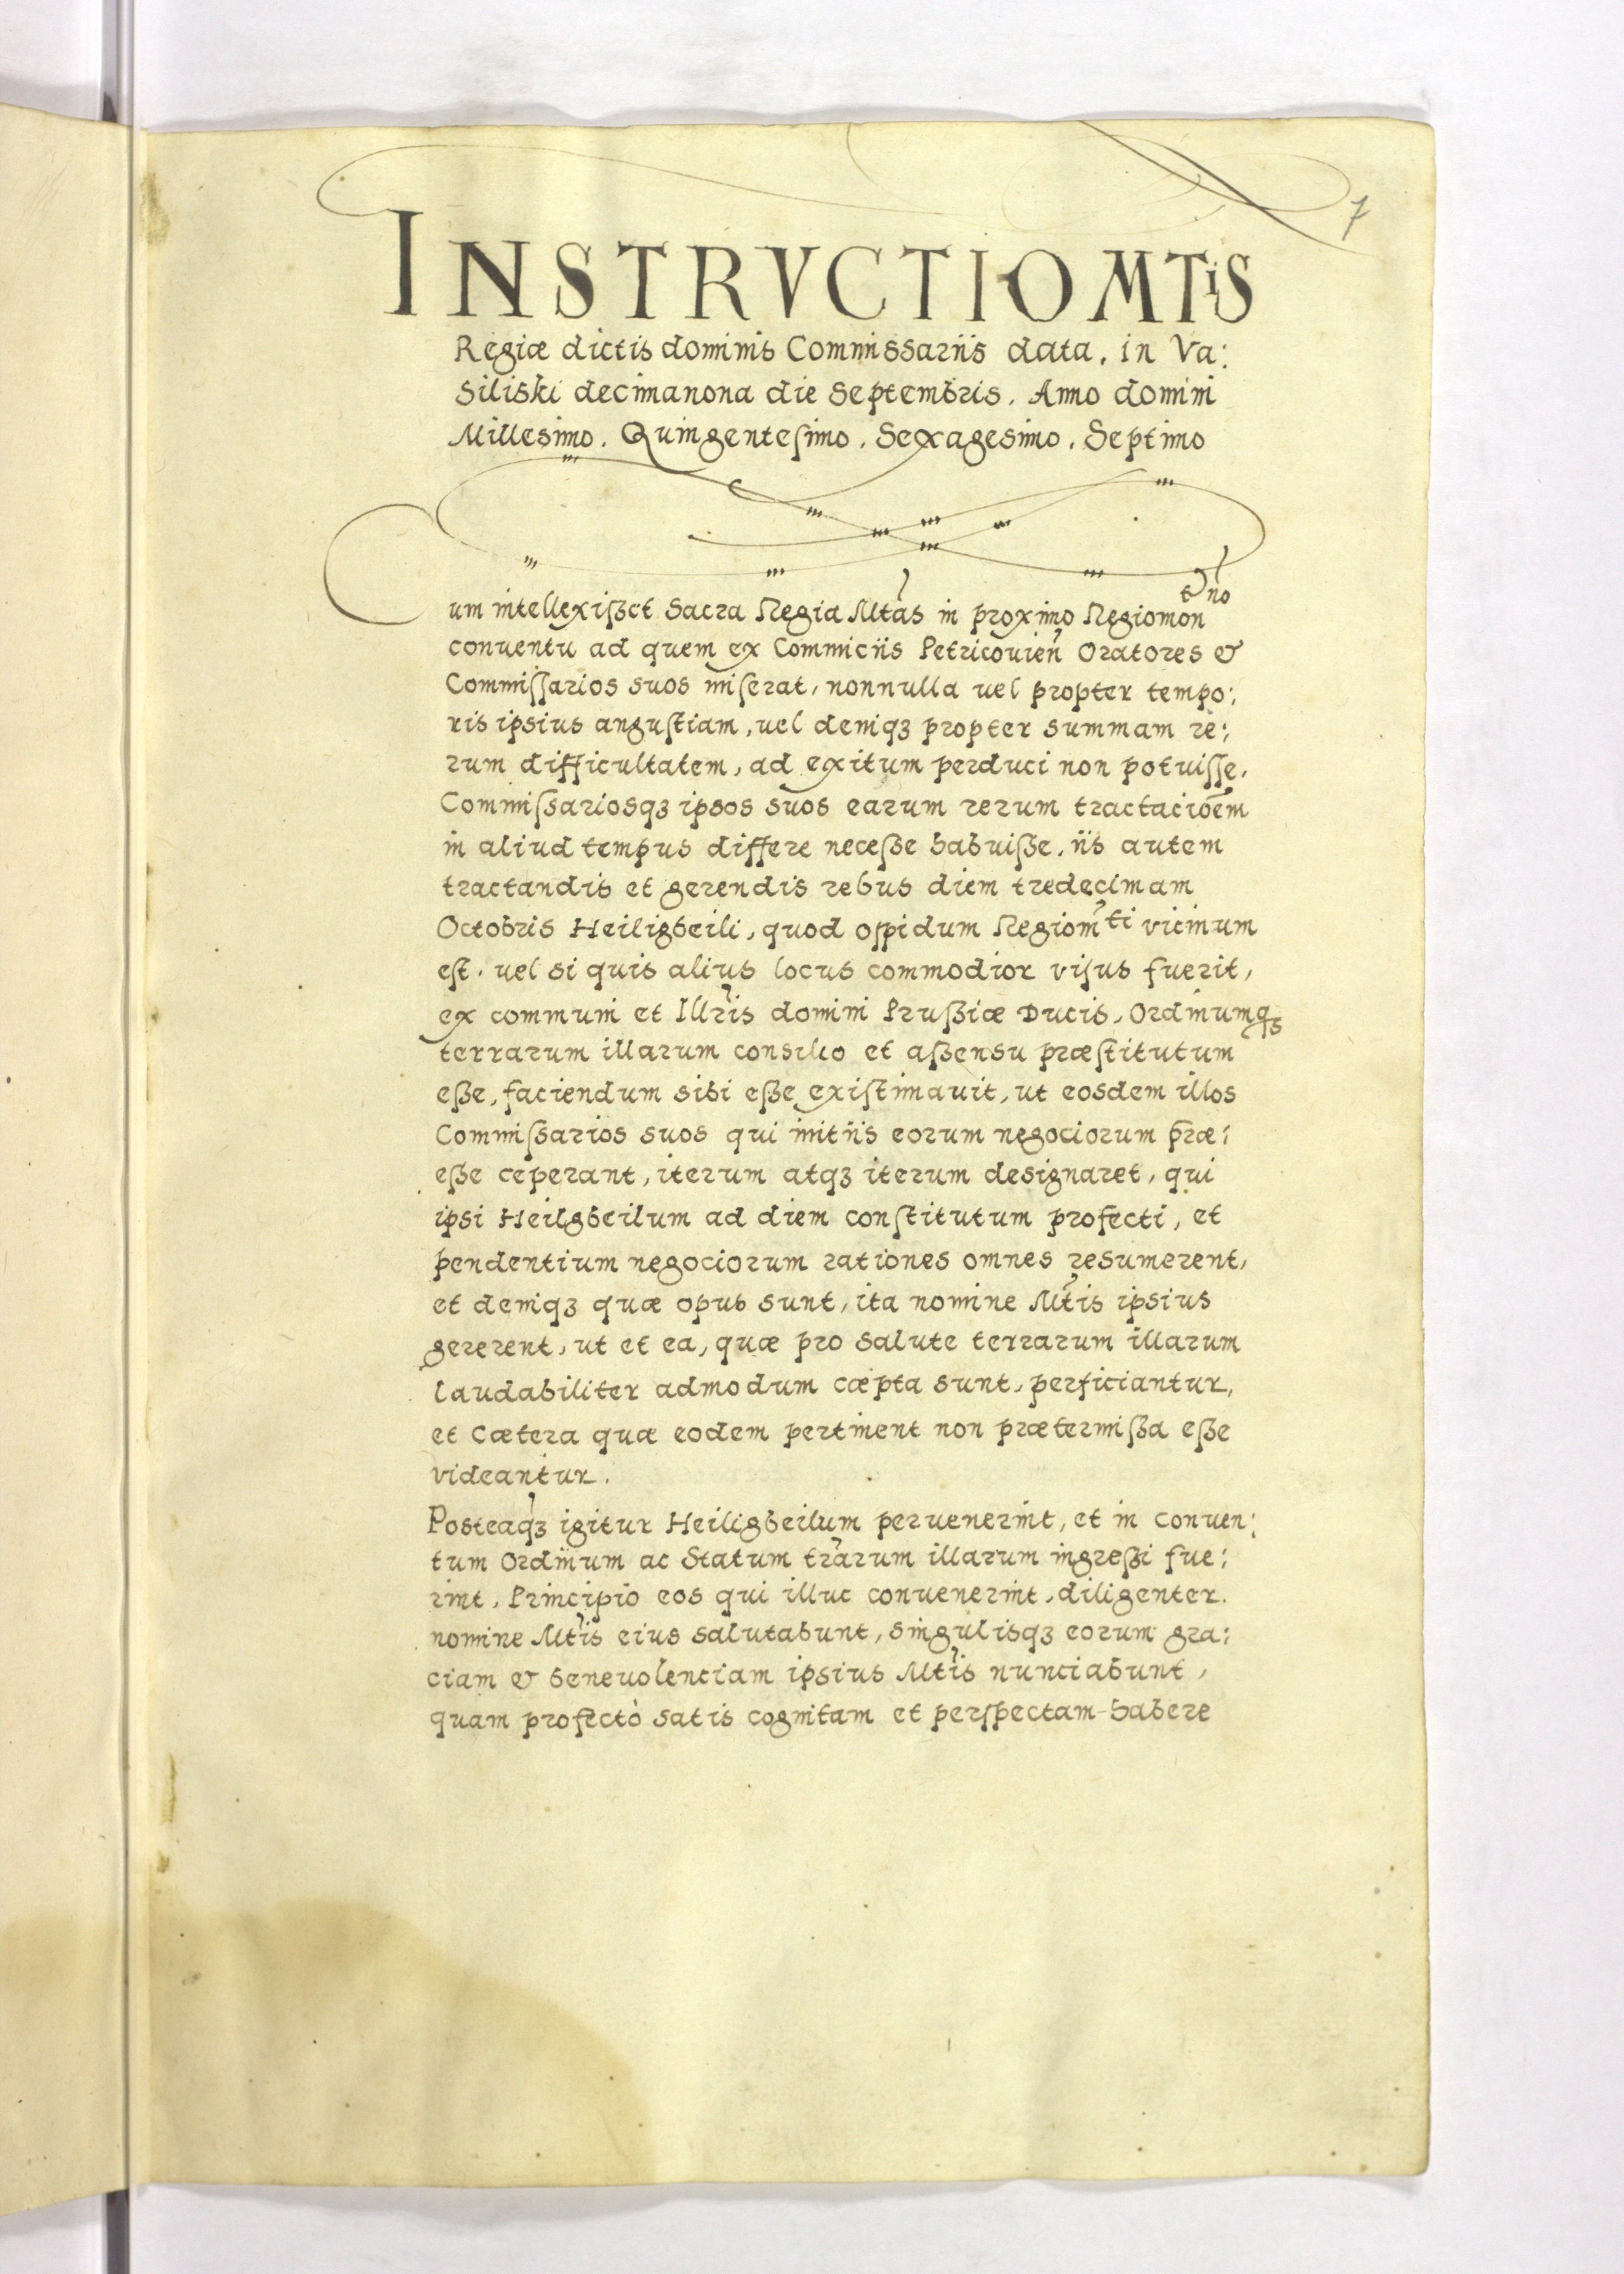 7
INSTRVCTIO MTis
Regiæ dictis dominis Commissariis data, in Va:
siliski decimanona die Septembris. Anno domini
Millesimo. Quingentesimo. Sexagesimo. Septimo
Cum intellexißet Sacra Regia Mtas in proximo Regiomontno
conuentu ad quem ex Commiciis Petricouien Oratores &
Commissarios suos miserat, nonnulla uel propter tempo:
ris ipsius angustiam, uel deniq3 propter summam re:
rum difficultatem, ad exitum perduci non potuisse,
Commissariosq3 ipsos suos earum rerum tractacioem
in aliud tempus differe neceße habuiße, iis autem
tractandis et gerendis rebus diem tredecimam
Octobris Heiligbeili, quod oppidum Regiomti vicinum
est. uel si quis alius locus commodior visus fuerit,
ex communi et Illris domini Prußiæ Ducis, Ordinumq3
terrarum illarum consilio et aßensu præstitutum
eße, faciendum sibi eße existimauit, ut eosdem illos
Commissarios suos qui initiis eorum negociorum præ:
eße ceperant, iterum atq3 iterum designaret, qui
ipsi Heilgbeilum ad diem constitutum profecti, et
pendentium negociorum rationes omnes resumerent,
et deniq3 quæ opus sunt, ita nomine Mtis ipsius
gererent, ut et ea, quæ pro salute terrarum illarum
laudabiliter admodum cæpta sunt, perficiantur,
et Cætera quæ eodem pertinent non prætermißa eße
videantur.
Posteaq3 igitur Heiligbeilum peruenerint, et in conuen:
tum Ordinum ac Statum trarum illarum ingreßi fue:
rint, Principio eos qui illuc conuenerint, diligenter.
nomine Mtis eius salutabunt, singulisq3 eorum gra:
ciam & beneuolenciam ipsius Mtis nunciabunt,
quam profectò satis cognitam et perspectam habere